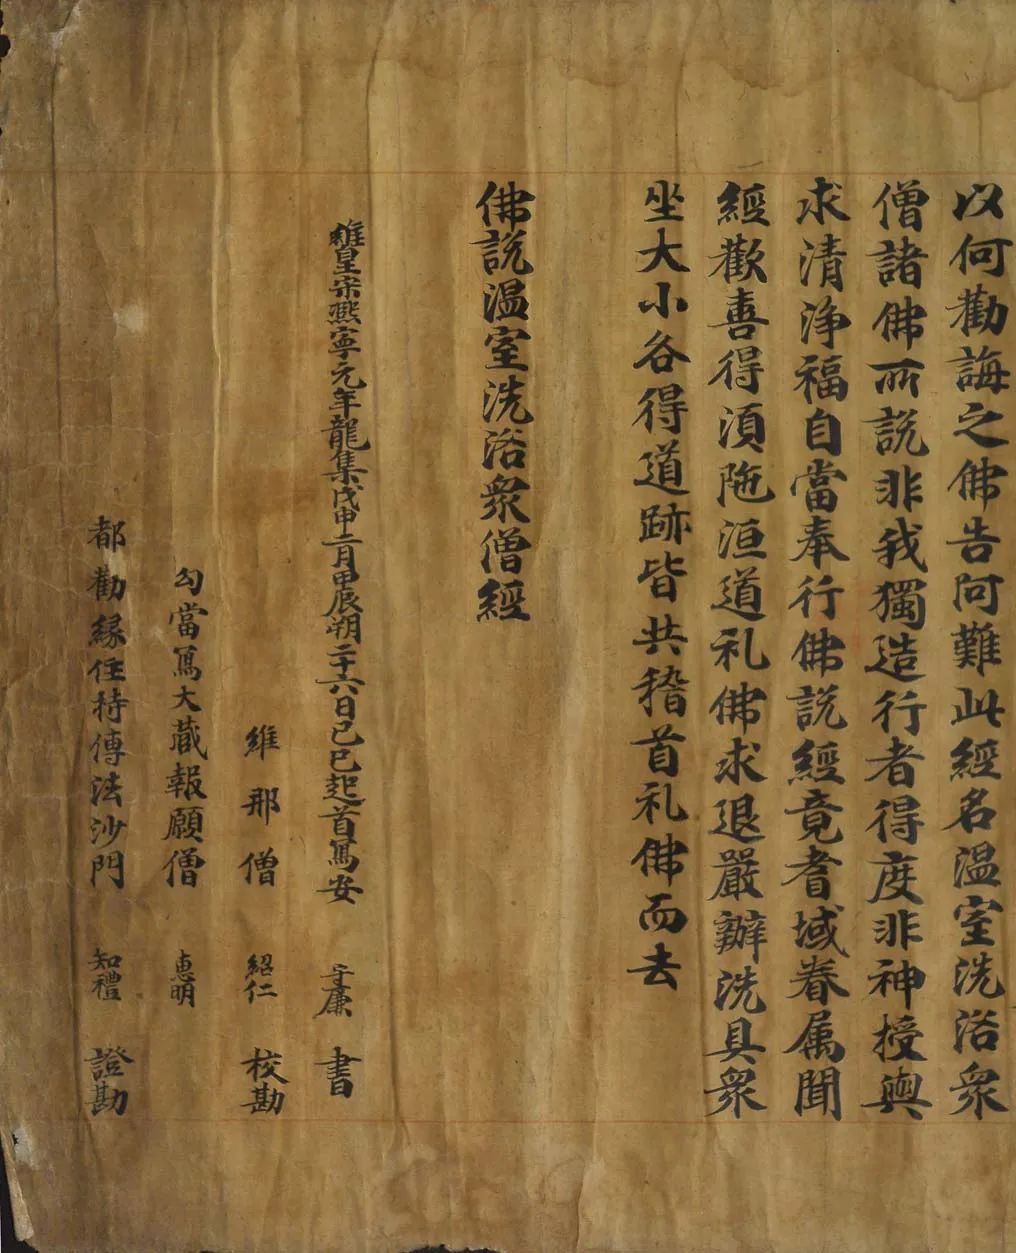 以何勸誨之佛告阿難此經名温室洗浴衆
僧諸佛所説非我獨造行者得度非神授與
求清淨福自當奉行佛説經竟耆域眷属聞
經歡喜得湏陁洹道礼佛求退嚴辦洗具衆
坐大小各得道跡皆共稽首礼佛而去
佛説温室洗浴衆僧經
維皇宋熈寧元年龍集戊申二月甲辰朔二十六日己巳起首寫安 守廉 書
維那僧 紹仁 校勘
勾當寫大藏報願僧 惠明
都勸縁住持傳法沙門 知禮 證勘